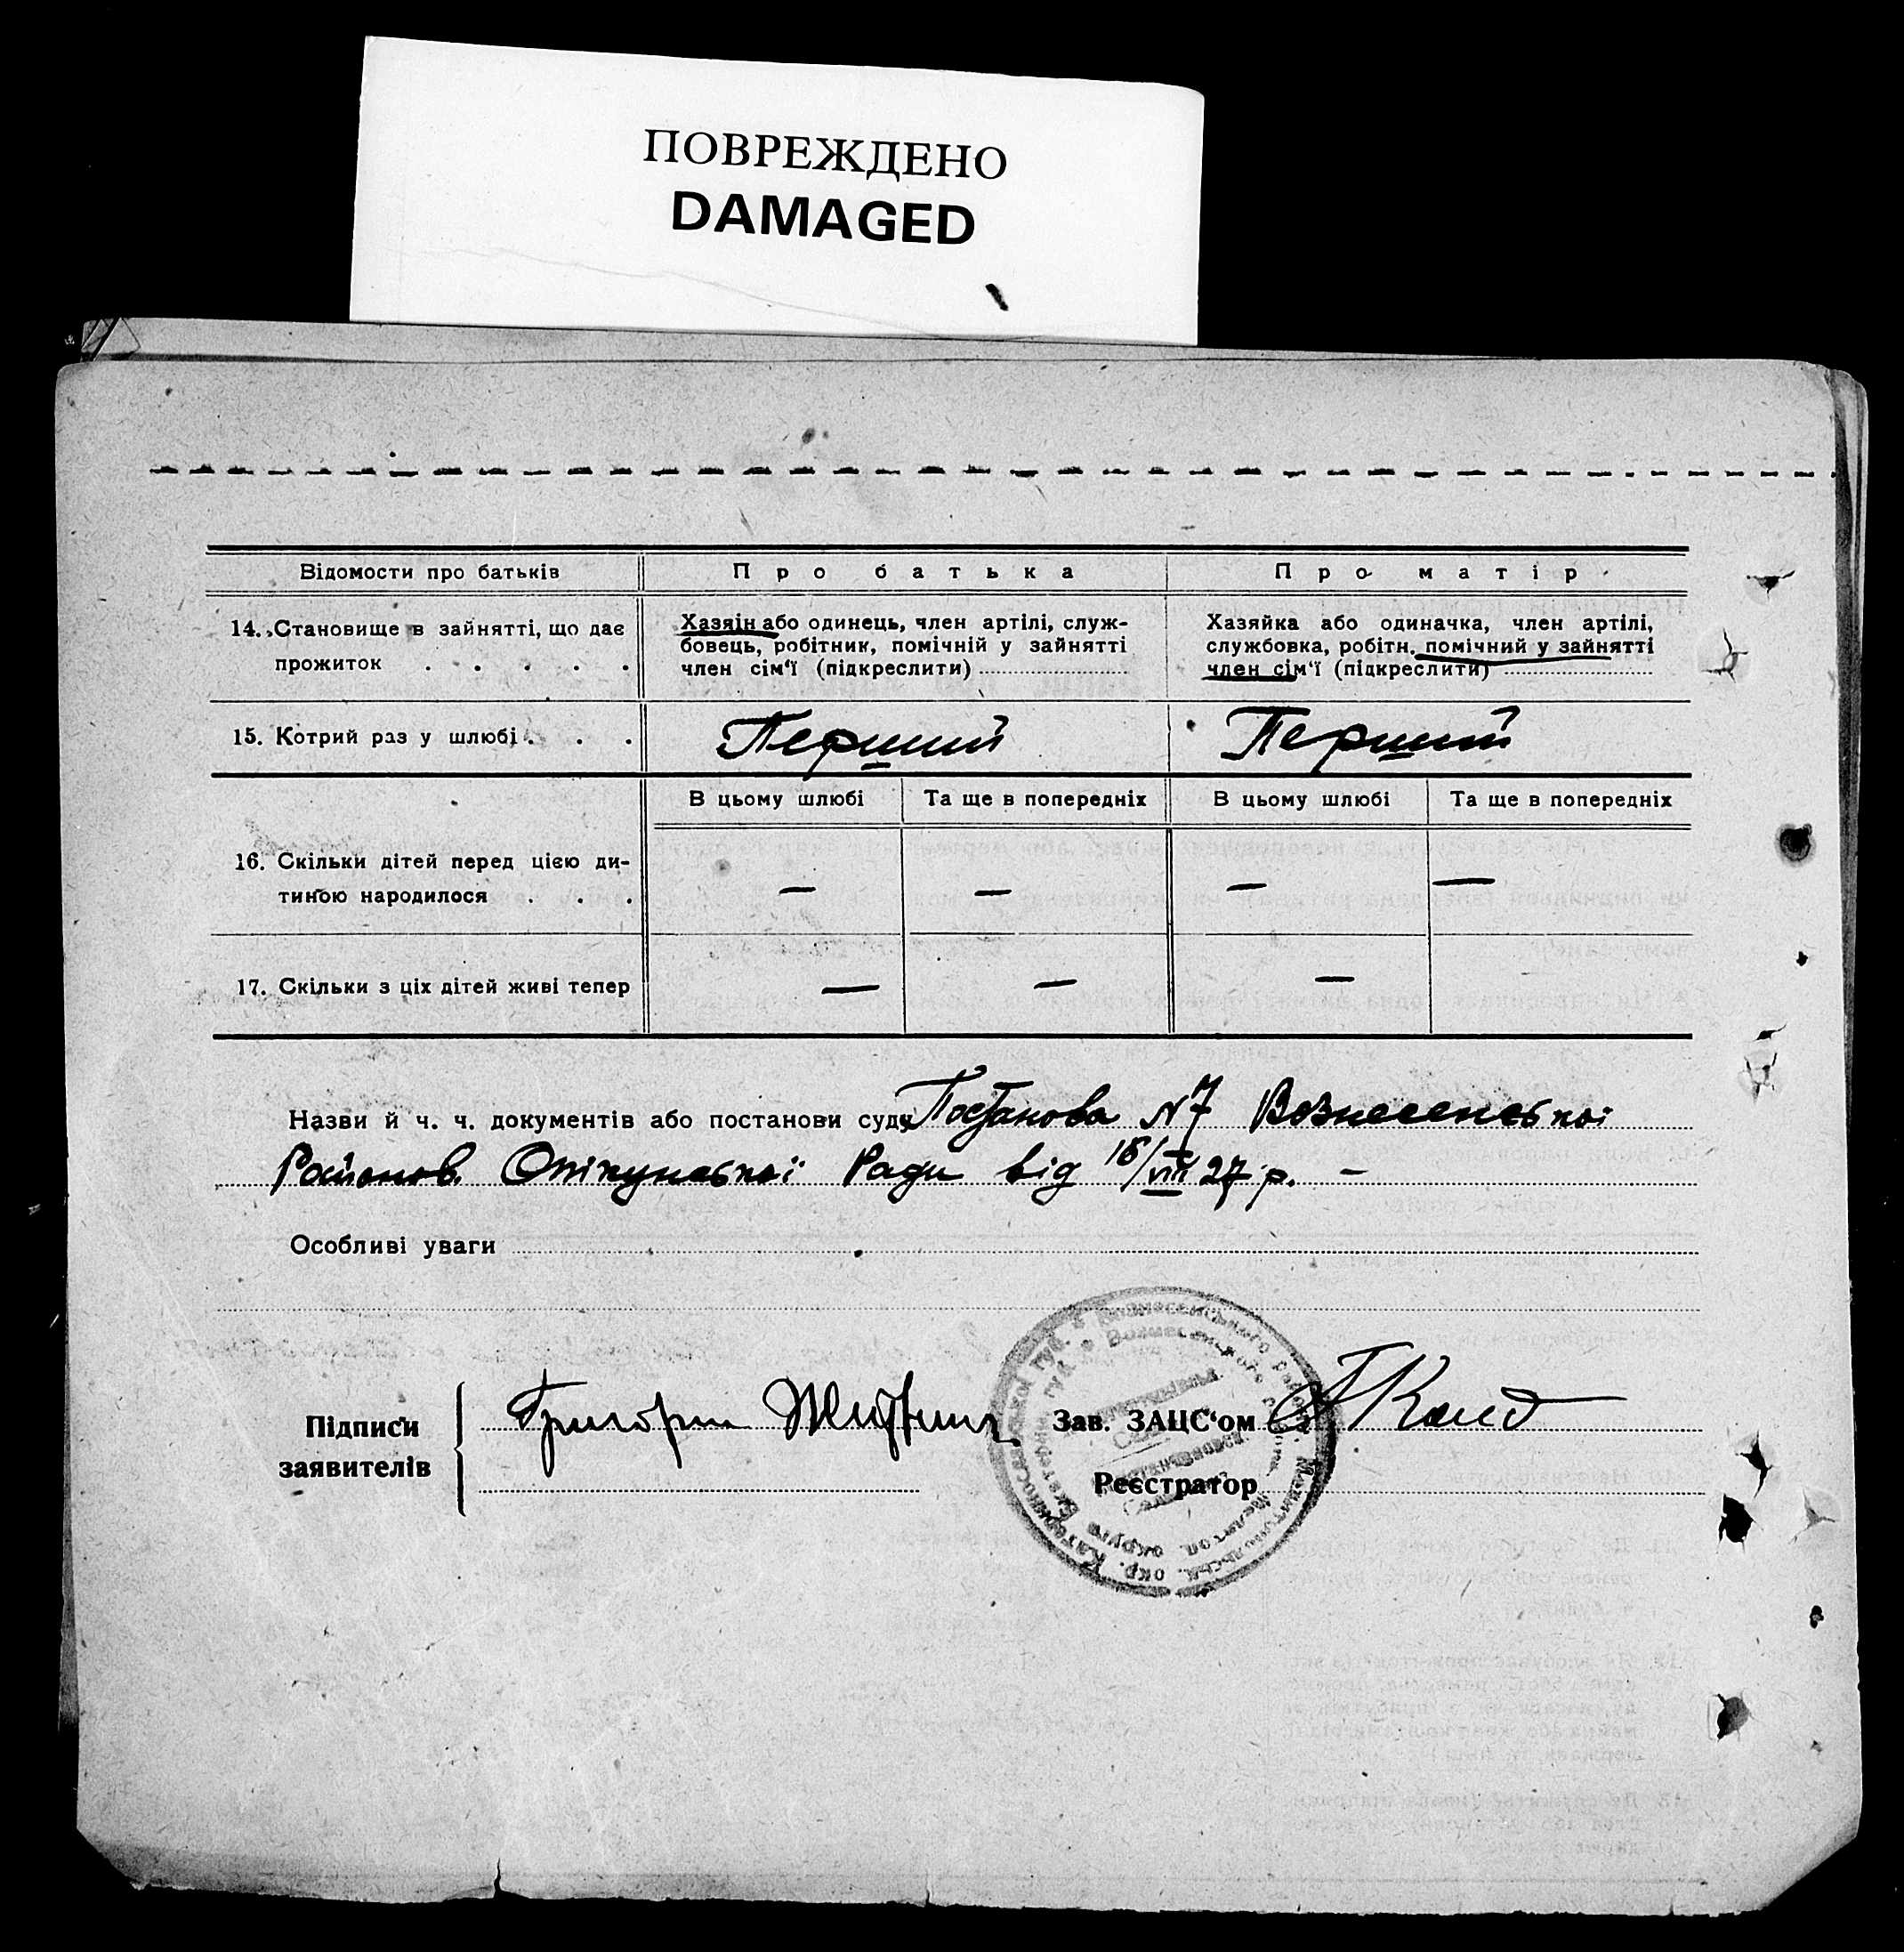 ПОВРЕЖДЕНО
DAMAGED
Відомости про батьків
Про батька
Про матір
14. Становище в зайнятті, що дає
прожиток . . . . .
Хазяін або одинець, член артілі, служ-
бовець, робітник, помічній у зайнятті
член сім'ї (підкреслити)
Хазяйка або одиначка, член артілі,
службовка, робітн. помічний у зайнятті
член сім'ї (підкреслити)
15. Котрий раз у шлюбі . . .
Перший
Перший
В цьому шлюбі
Та ще в попередніх
В цьому шлюбі
Та ще в попередніх
16. Скільки дітей перед цією ди-
тиною народилося . . .
— — — —
17. Скільки з ціх дітей живі тепер
— — —
Назви й ч. ч. документів або постанови суду Постанова N7 Вознесенської
Районов. Опікунської Ради від 18/VIII 27 р. –
Особливі уваги
Підписи
заявителів
Григорий
Зав. ЗАЦС'ом
Реєстратор
Вознесенського район. Мелитопольськ. окр. Катеринославської губ.